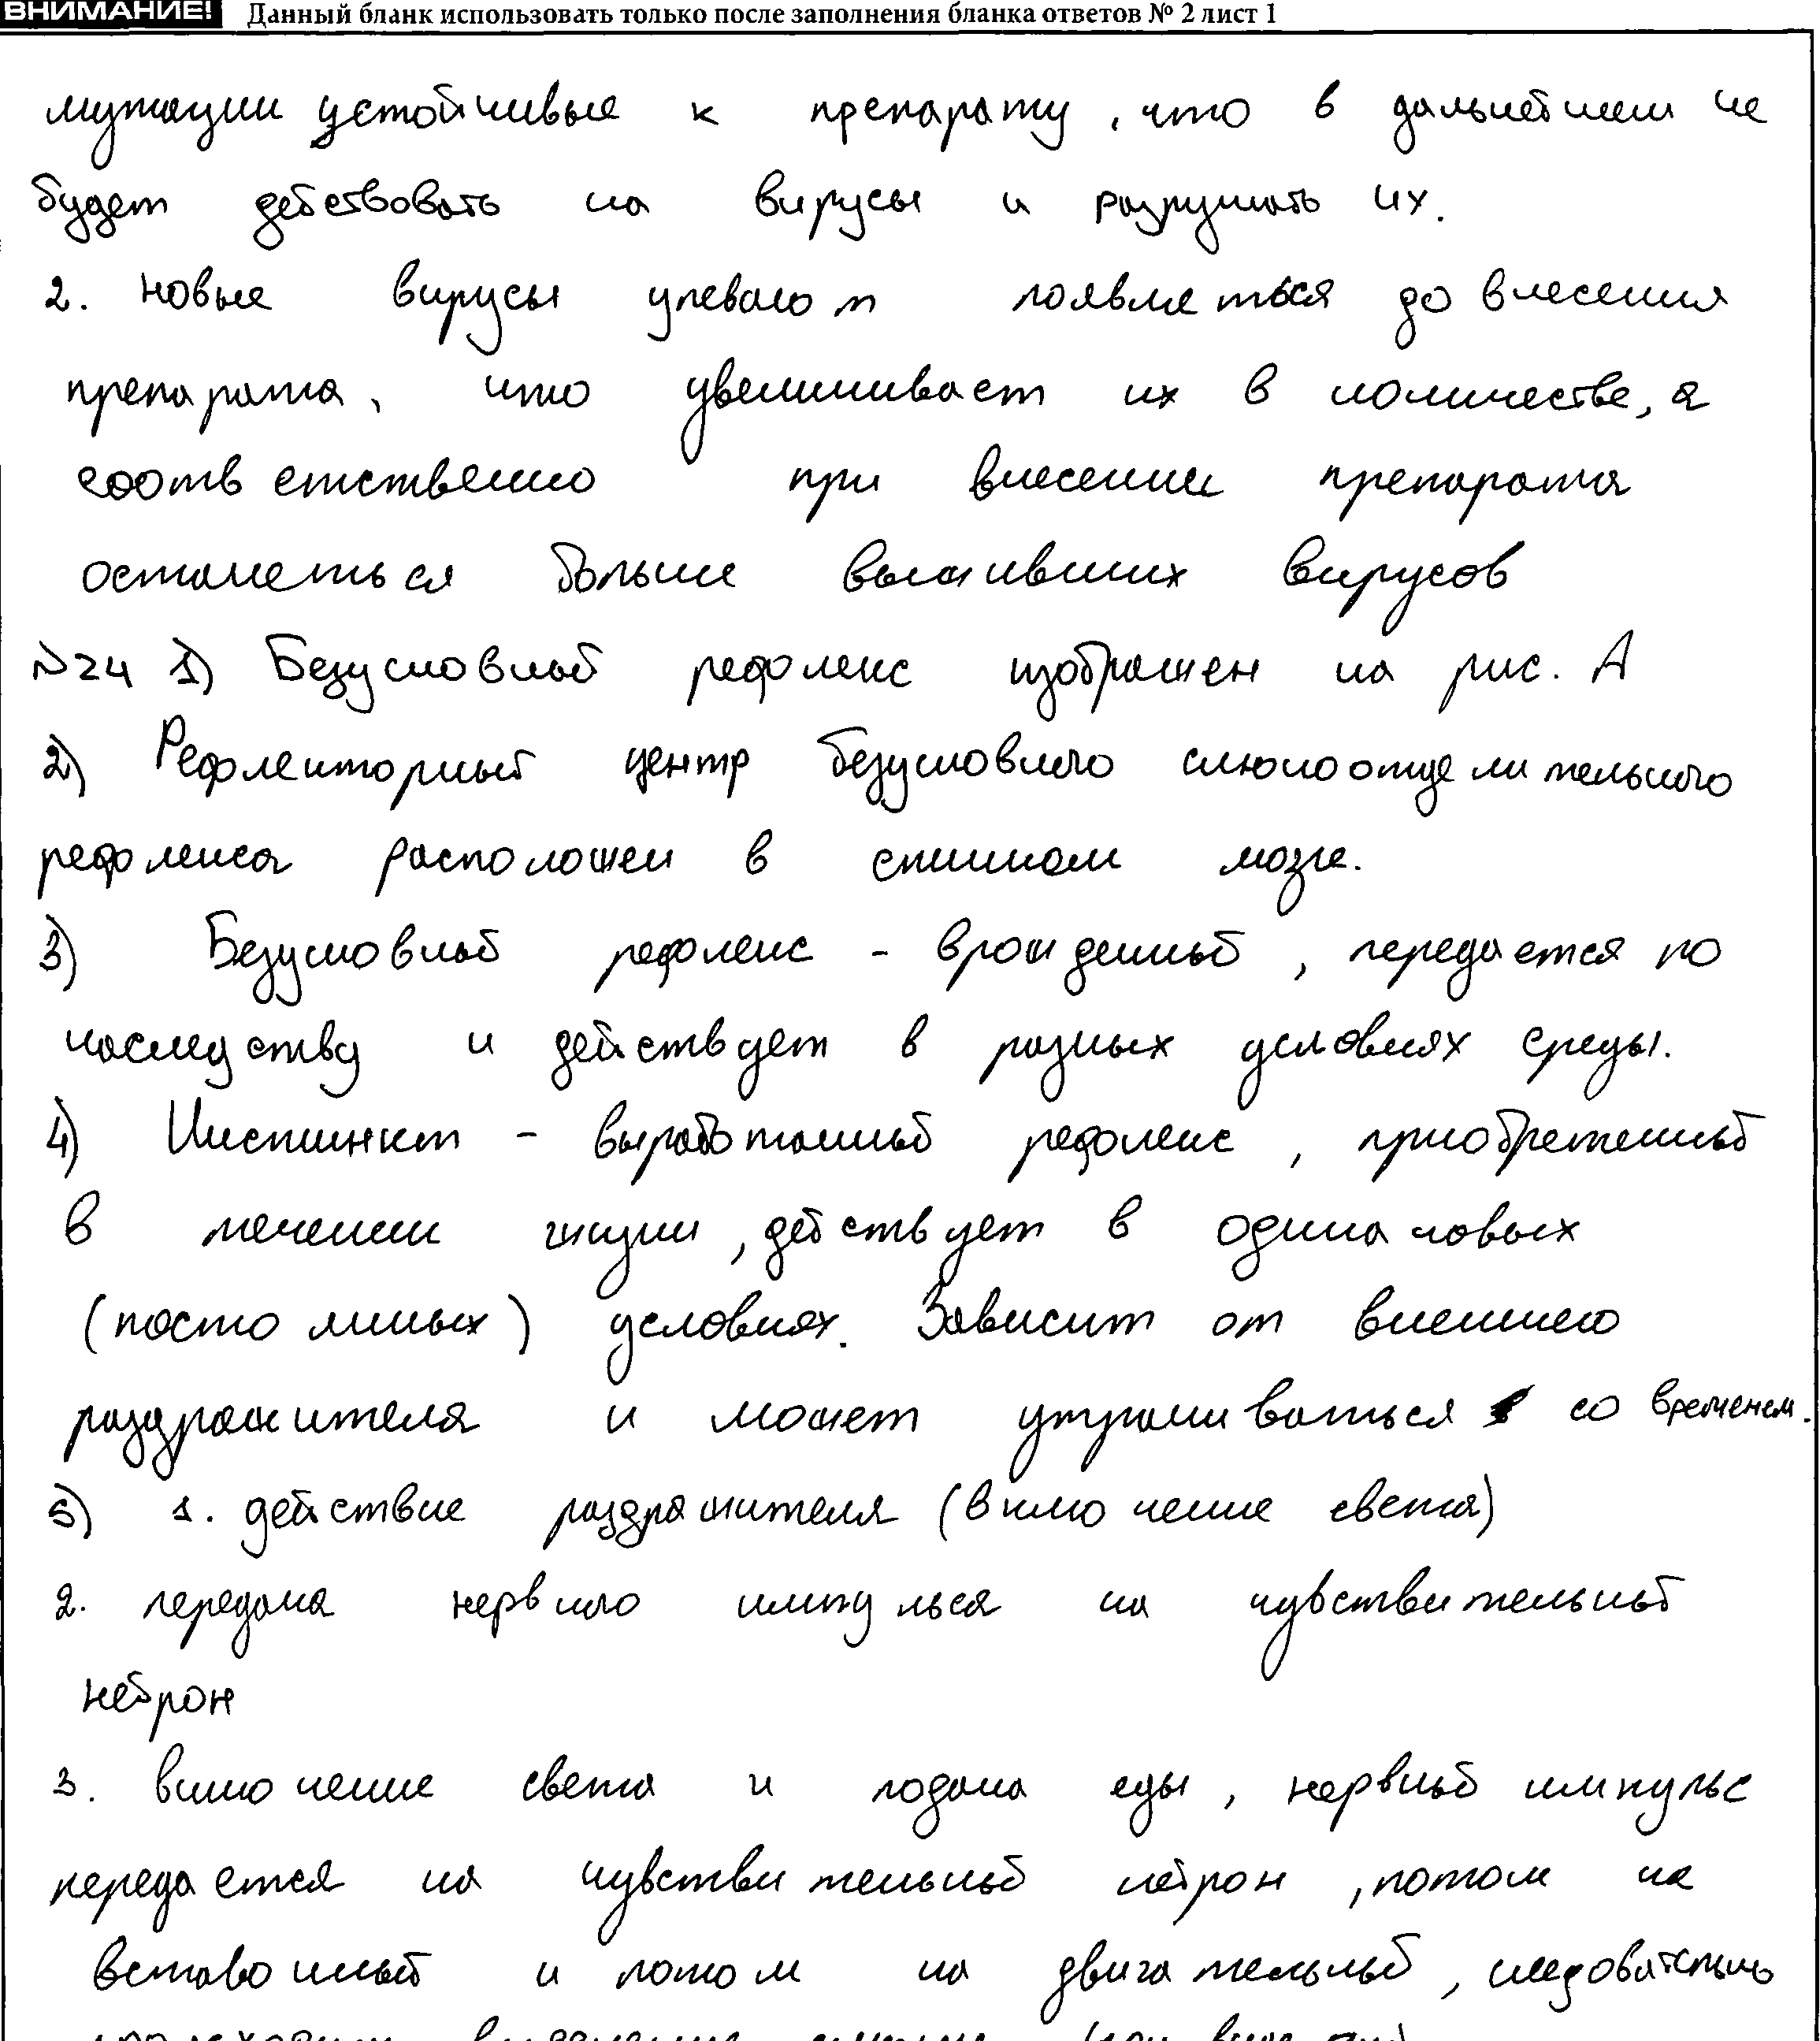 ВНИМАНИЕ! Данный бланк использовать только после заполнения бланка ответов № 2 лист 1
мутации устойчивые к препарату, что в дальнейшем не
будет действовать на вирусы и разрушать их.
2. новые вирусы успевают появляться до внесения
препарата, что увеличивает их в количестве, а
соответственно при внесении препарата
останеться больше выживших вирусов
№24 1) Безусловный рефлекс изображен на рис. А
2) Рефлекторный центр безусловного слюноотделительного
рефлекса расположен в спинном мозге.
3) Безусловный рефлекс - врожденный, передается по
наследству и действует в разных условиях среды.
4) Инстинкт - выработанный рефлекс, приобретенный
в течении жизни, действует в одинаковых
(постоянных) условиях. Зависит от внешнего
раздражителя и может утрачиваться со временем.
5) 1. действие раздражителя (включение света)
2. передача нервного импульса на чувствительный
нейрон
3. включение света и подача еды, нервный импульс
передается на чувствительный нейрон, потом на
вставочный и потом на двигательный, следовательно